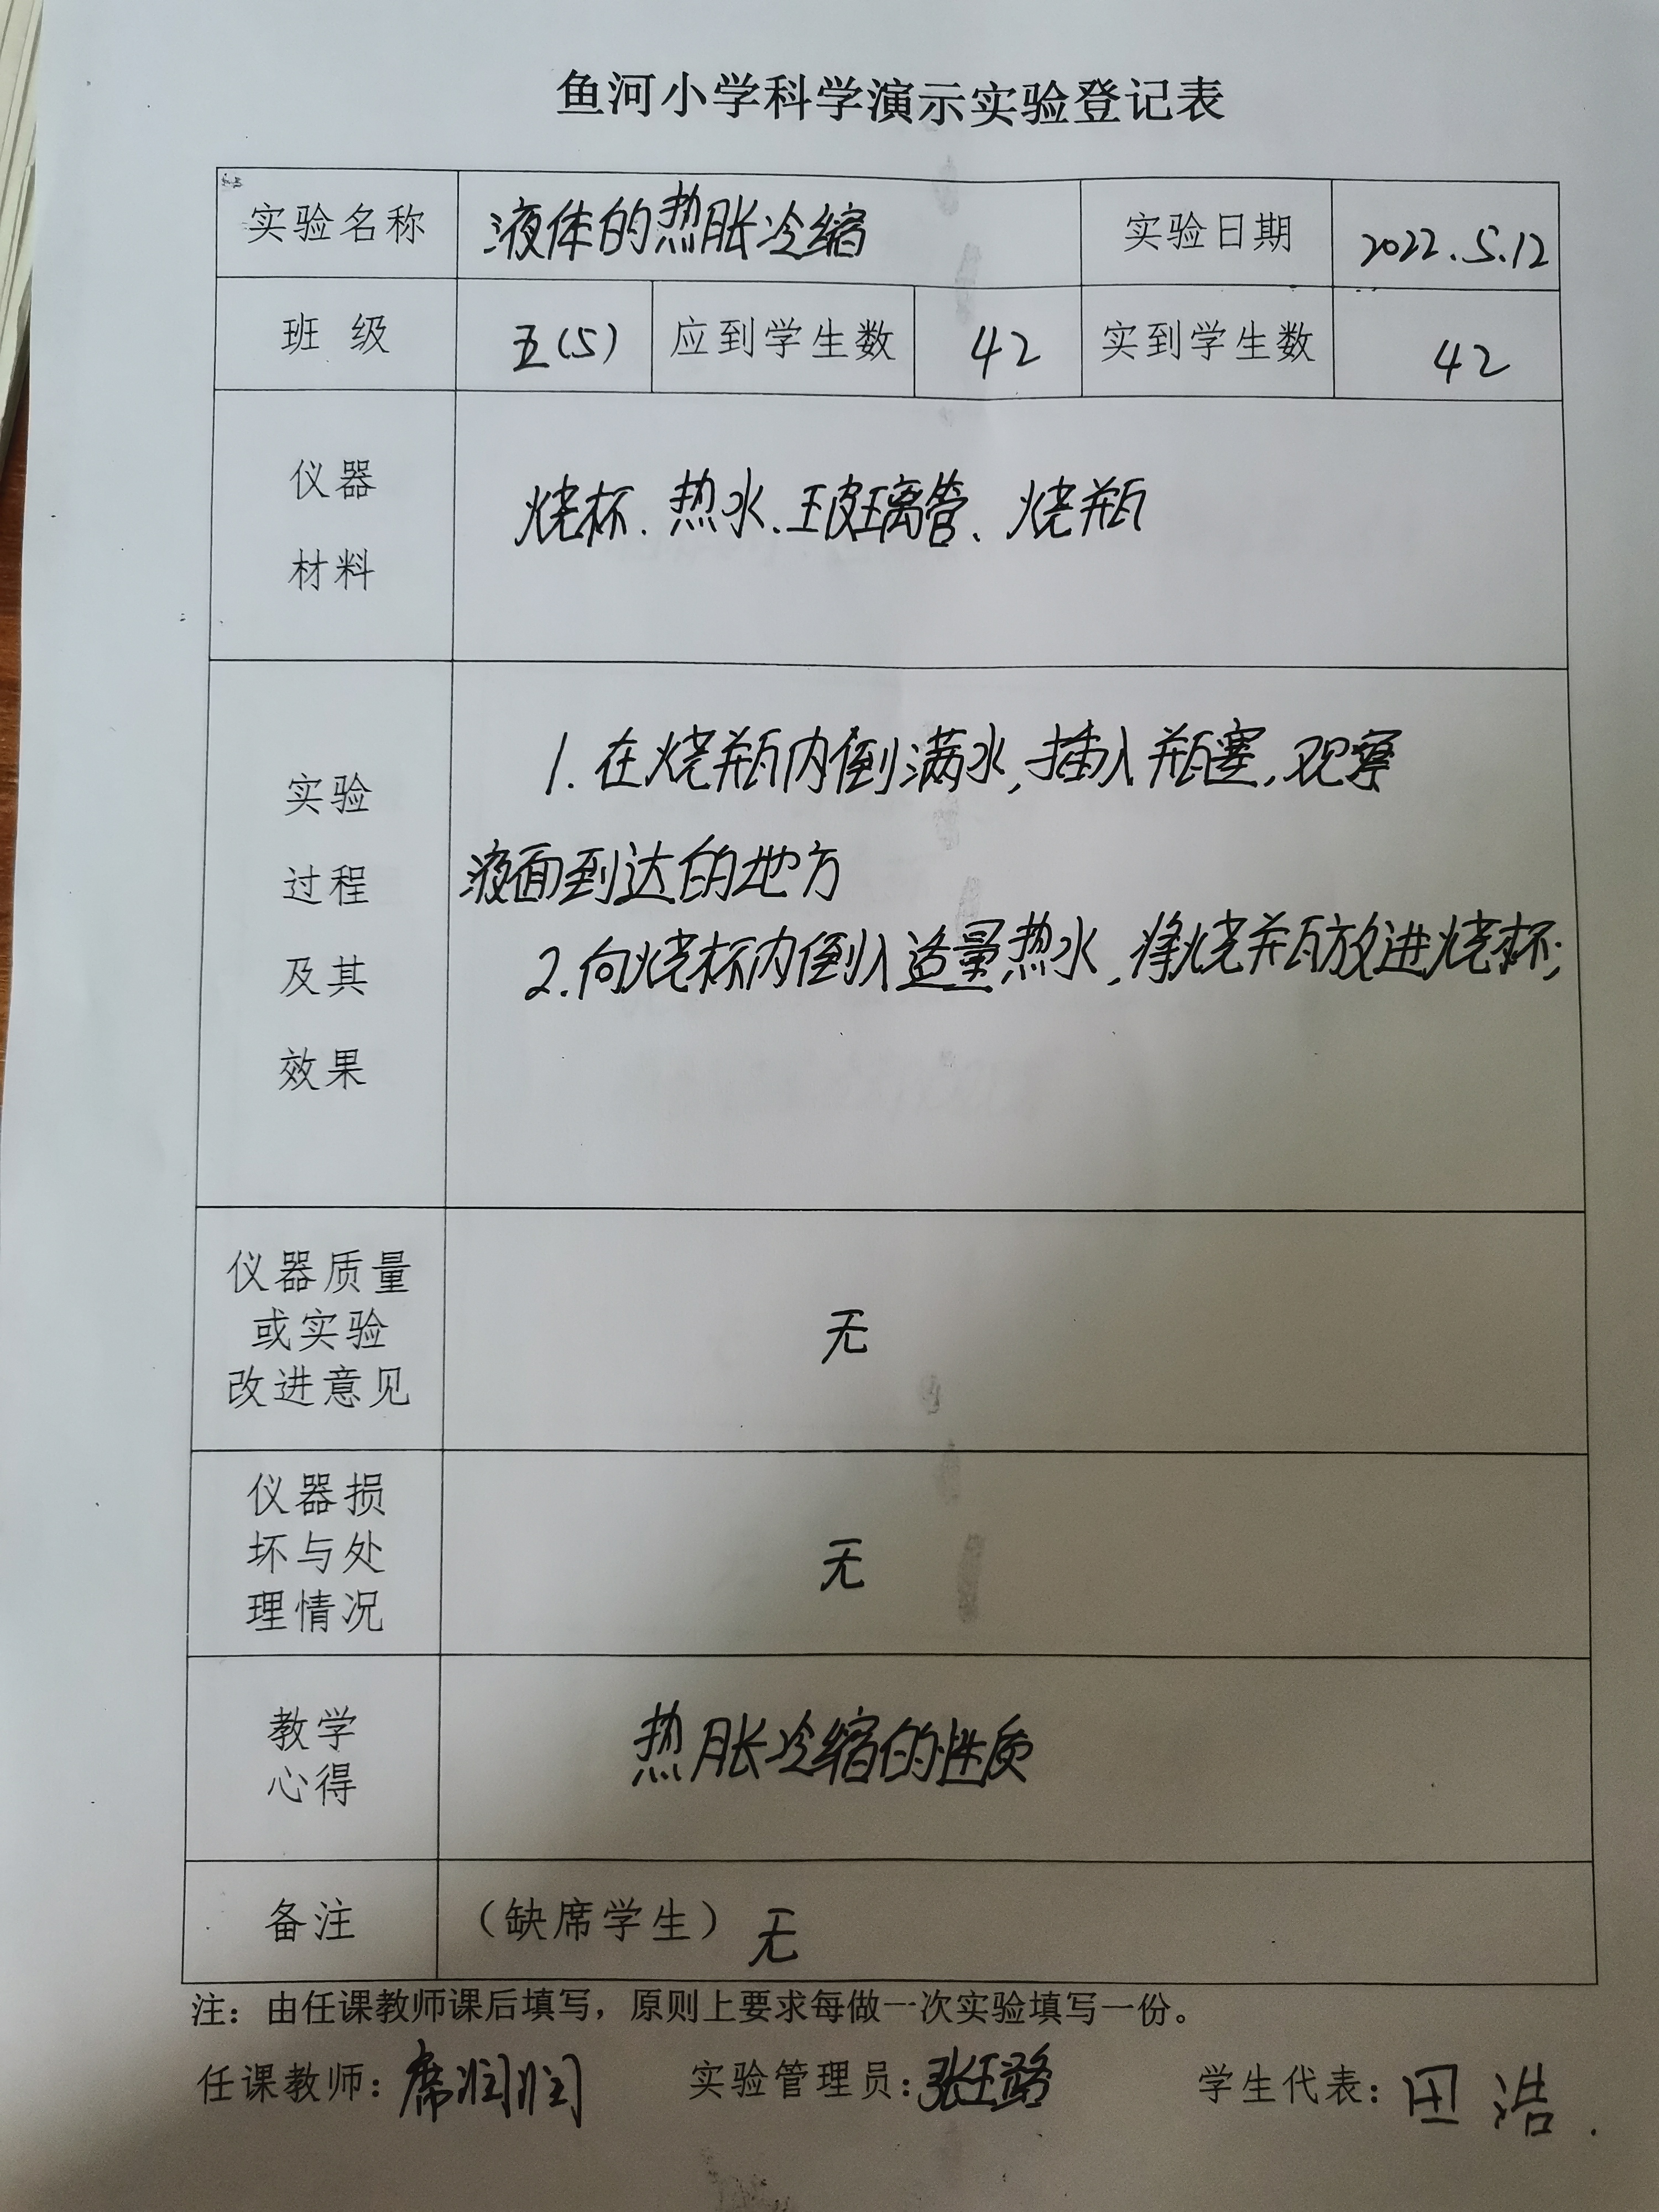 鱼河小学科学演示实验登记表
实验名称 液体的热胀冷缩 实验日期 2022.5.12
班 级 五(5) 应到学生数 42 实到学生数 42
仪器
材料
烧杯、热水、玻璃管、烧瓶
实验
过程
及其
效果
1.在烧瓶内倒满水,插入瓶塞,观察
液面到达的地方
2.向烧杯内倒入适量热水,将烧瓶放进烧杯;
仪器质量
或实验
改进意见
无
仪器损
坏与处
理情况
无
教学
心得
热胀冷缩的性质
备注 (缺席学生) 无
注：由任课教师课后填写，原则上要求每做一次实验填写一份。
任课教师：席润润 实验管理员： 学生代表：田浩